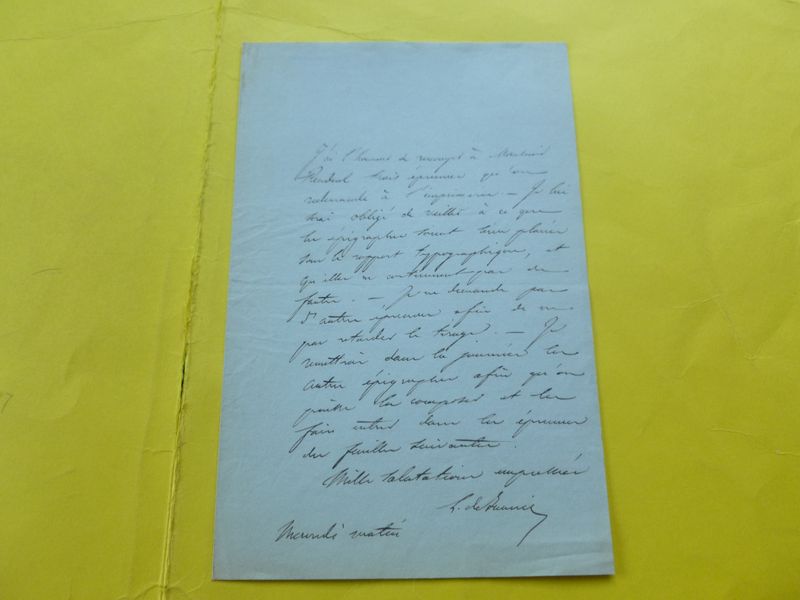 J'ai l'honneur de renvoyer à Monsieur
trois épreuves qu'on
redemande à l'imprimerie. — Je lui
serai obligé de veiller à ce que
les épigraphes soient bien placées
sous le rapport typographique, et
qu'elles ne contiennent pas de
fautes. — Je ne demande pas
d'autre épreuve afin de ne
pas retarder le tirage. — Je
remettrai dans la journée les
autres épigraphes afin qu'on
puisse les composer et les
faire entrer dans les épreuves
des feuilles suivantes.
Mille salutations empressées
Mercredi matin